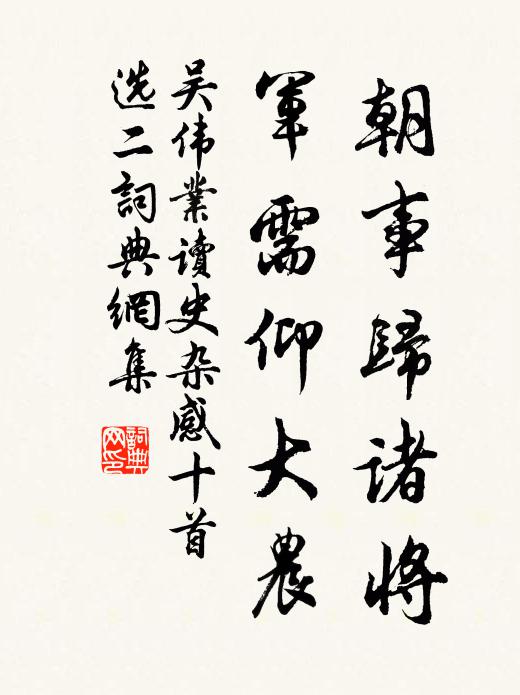 朝事歸诸将
軍需仰大農
吴伟業讀史杂感十首
选二詞典網集
詞典
网印